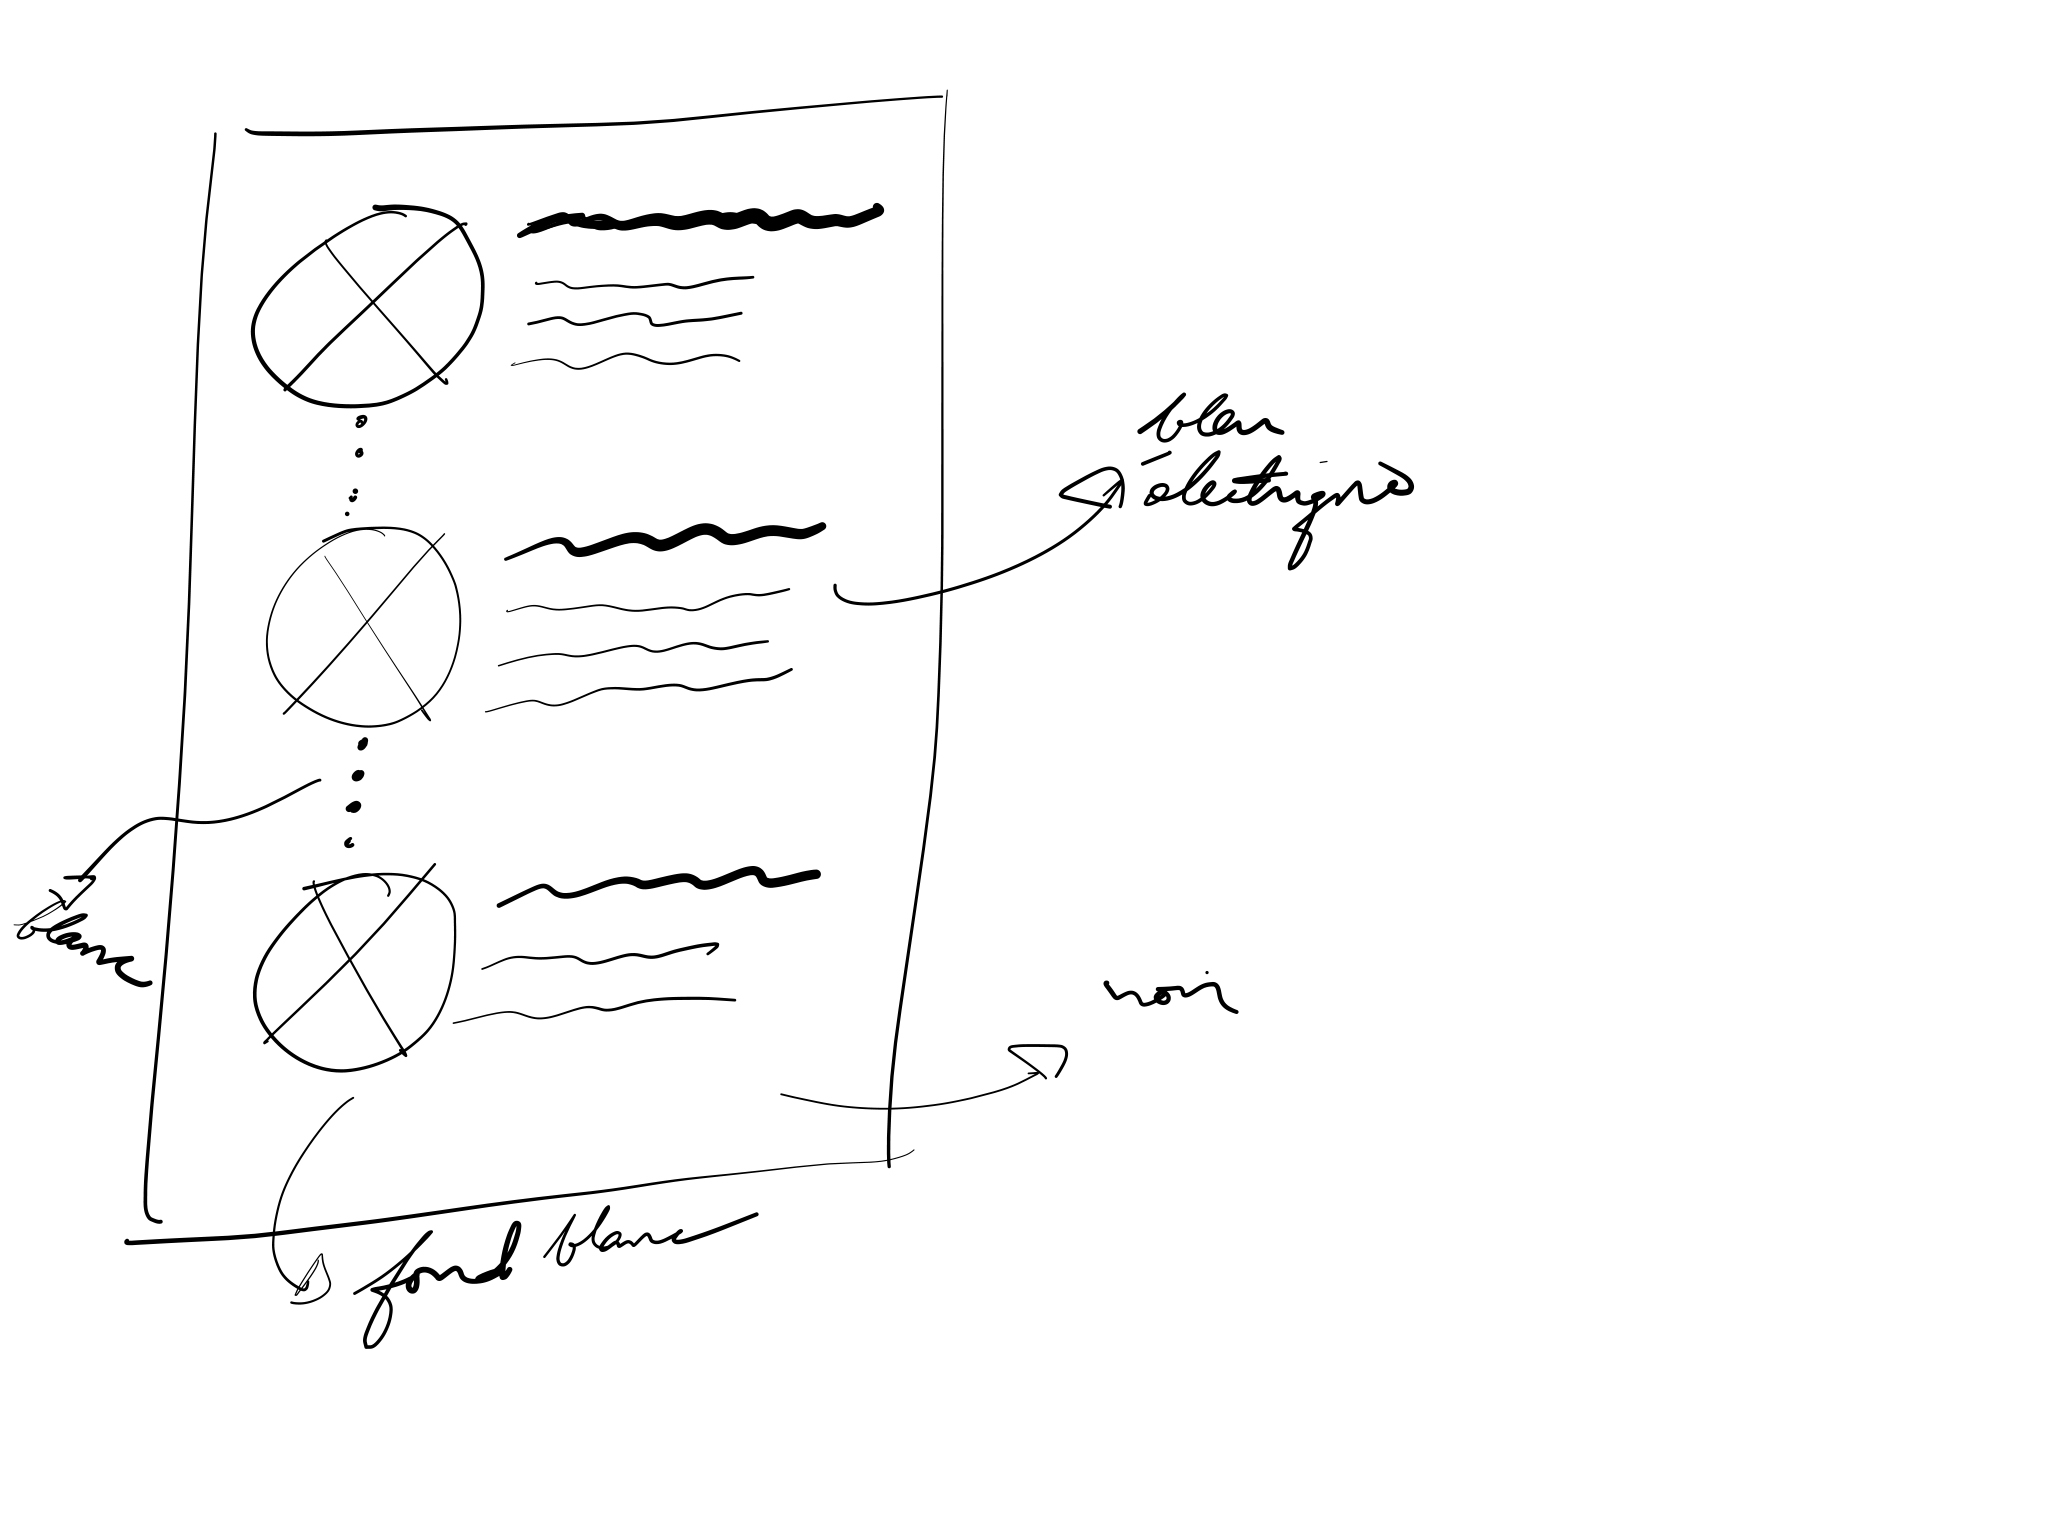 bleu
électrique
blanc
noir
fond blanc